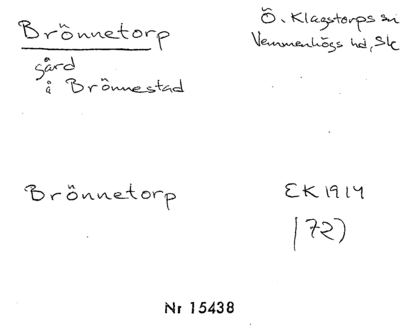 Brönnetorp
Ö. Klagstorps sn
Vemmenhögs hd, Sk
gård
å Brönnestad
Brönnetorp
EK 1914
172)
Nr 15438